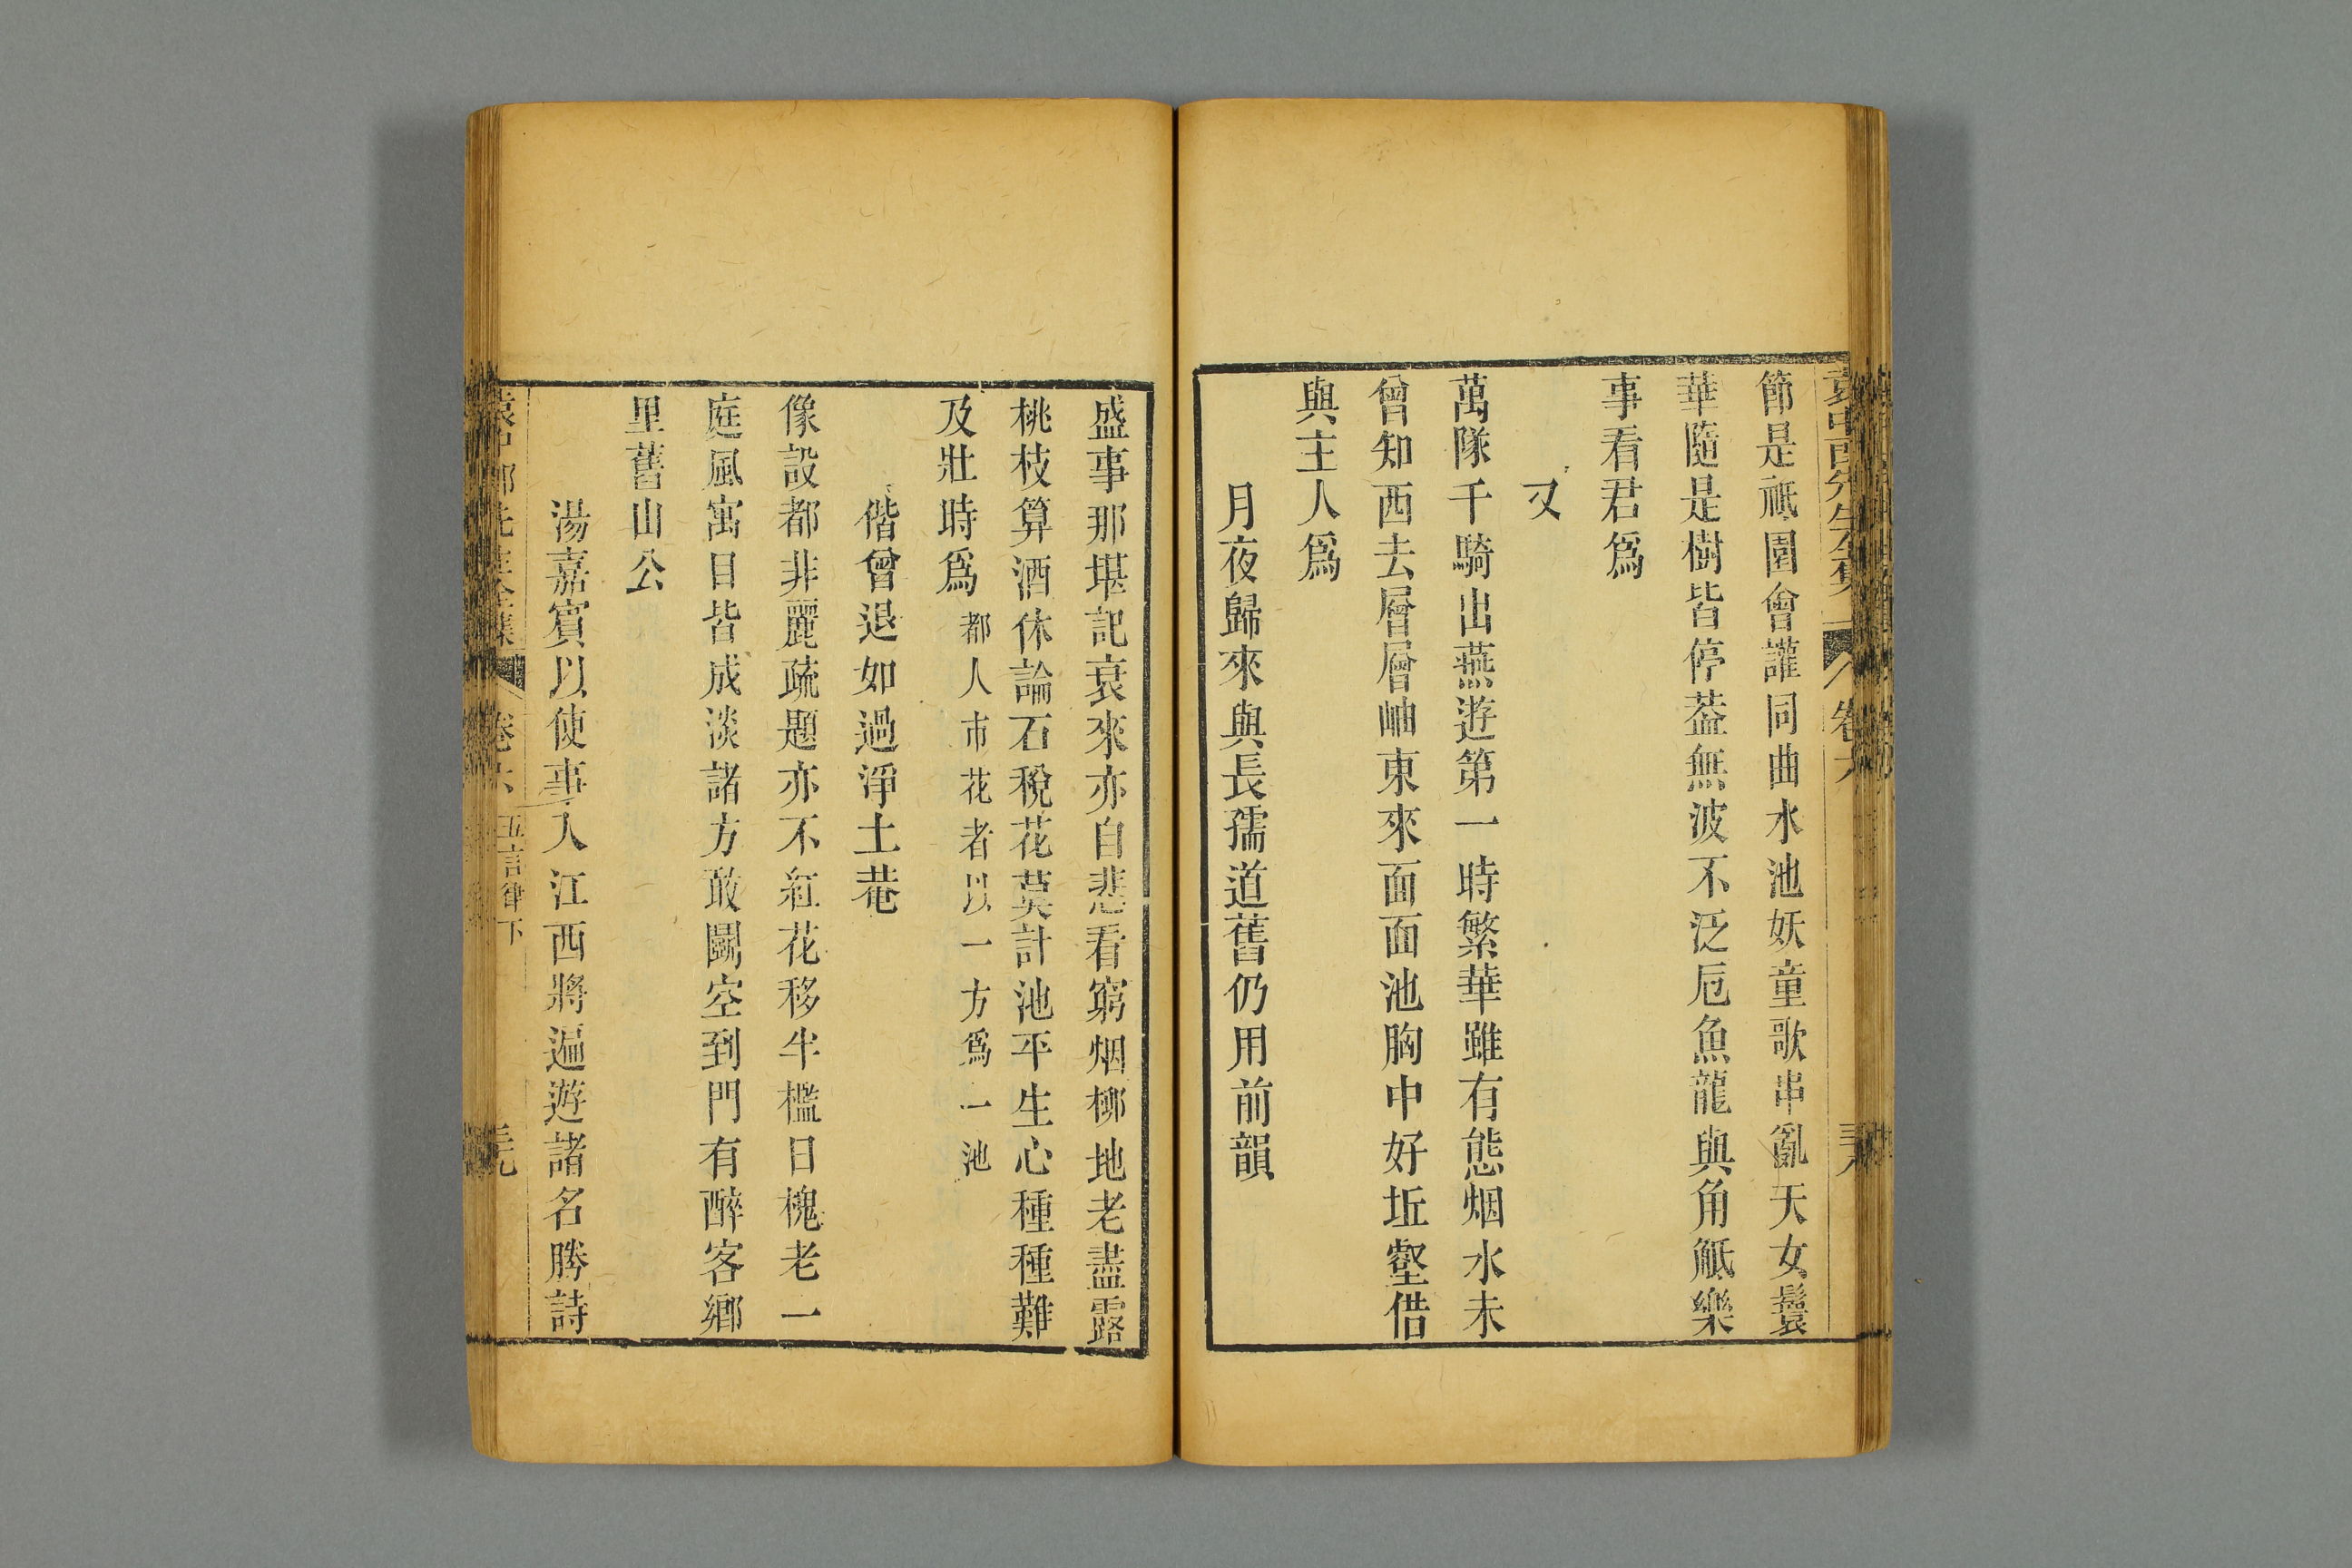 節是祗園會讙同曲水池妖童歌串亂天女鬟
華隨是樹皆停葢無波不泛卮魚龍與角觝樂
事看君爲
又
萬隊千騎出燕遊第一時繁華雖有態烟水未
曾知西去層層岫東來面面池胸中好坵壑借
與主人爲
月夜歸來與長孺道舊仍用前韻
盛事那堪記衰來亦自悲看窮烟柳地老盡露
桃枝算酒休論石稅花莫計池平生心種種難
及壯時爲 都人市花者以一方爲一池
偕曾退如過淨土菴
像設都非麗疏題亦不紅花移半檻日槐老一
庭風寓目皆成淡諸方敢鬭空到門有醉客鄉
里舊山公
湯嘉賓以使事入江西將遍遊諸名勝詩
五言律下